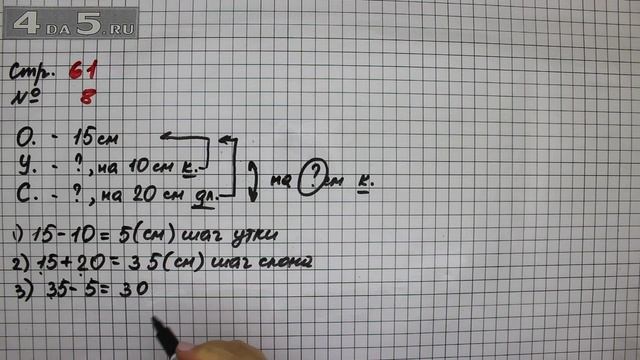 4DA5.RU
Стр. 61
№ 8
О. - 15 см
У. - ?, на 10 см к.
С. - ?, на 20 см дл. на ? см к.
1) 15 - 10 = 5 (см) шаг утки
2) 15 + 20 = 35 (см) шаг слона
3) 35 - 5 = 30